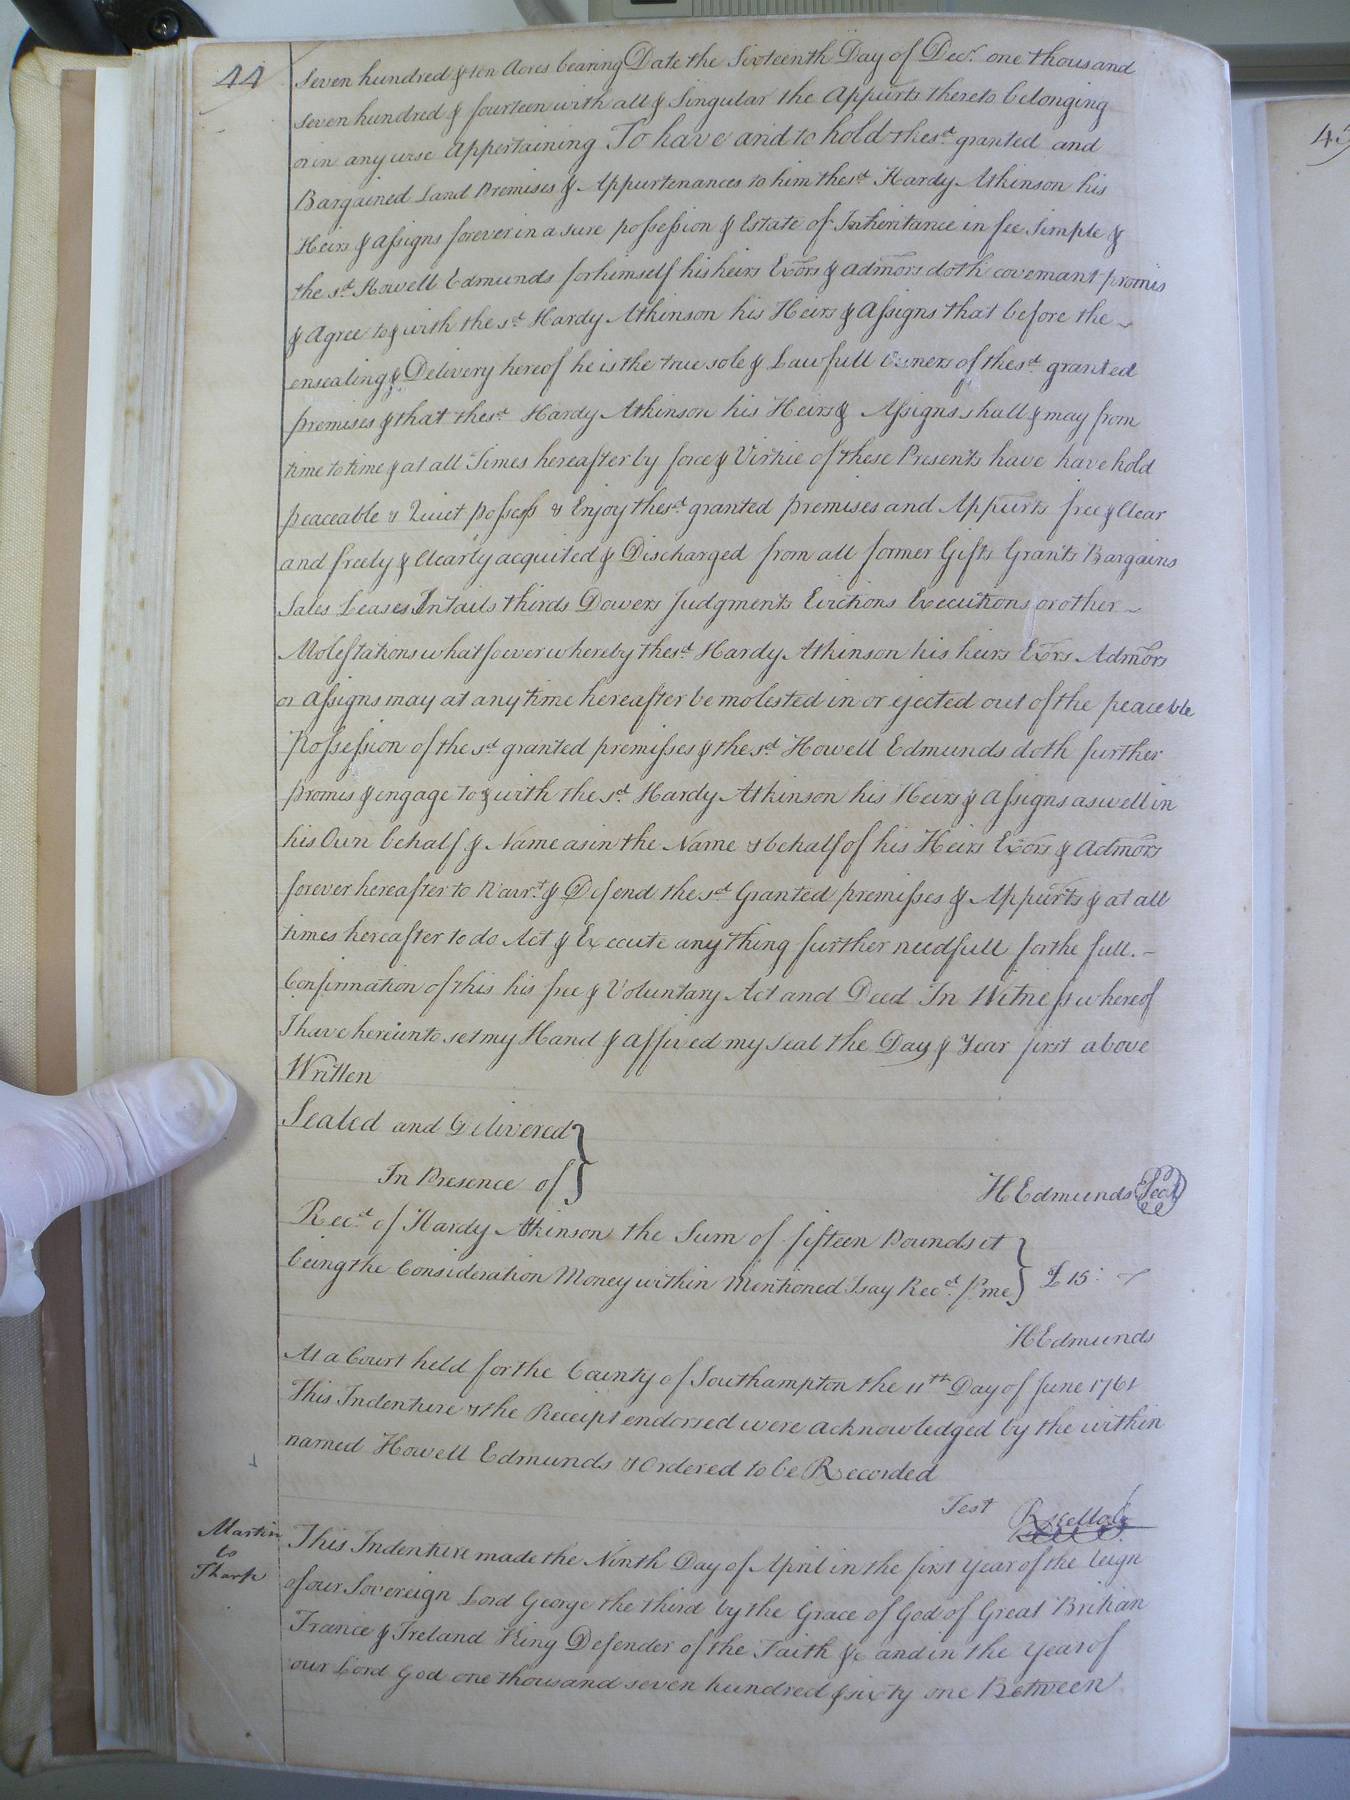 44
45
Seven hundred & ten Acres bearing Date the Sixteenth Day of Decr. one thousand
Seven hundred & fourteen with all & Singular the Appurts thereto belonging
or in any wise Appertaining To have and to hold the sd. granted and
Bargained Land Premises & Appurtenances to him the sd Hardy Atkinson his
Heirs & Assigns forever in a sure possession & Estate of Inheritance in fee Simple &
the sd. Howell Edmunds for himself his heirs Exors & admors doth covenant promis
& Agree to & with the sd Hardy Atkinson his Heirs & Assigns that before the
ensealing & Delivery hereof he is the true sole & Lawfull Owners of the sd. granted
premises & that the sd. Hardy Atkinson his Heirs & Assigns shall & may from
time to time & at all Times hereafter by force & Virtue of these Presents have have hold
peaceable & Quiet possess & Enjoy the sd. granted premises and Appurts free & Clear
and freely & Clearly acquited & Discharged from all former Gifts Grants Bargains
Sales Leases Intails thirds Dowers Judgments Evictions Executions or other
Molestations whatsoever whereby the sd. Hardy Atkinson his heirs Exors Admors
or Assigns may at any time hereafter be molested in or ejected out of the peaceble
Possession of the sd granted premisses & the sd. Howell Edmunds doth further
promis & engage to & with the sd. Hardy Atkinson his Heirs & Assigns as well in
his Own behalf & Name as in the Name & behalf of his Heirs Exors & Admors
forever hereafter to Warrt. & Defend the sd Granted premisses & Appurts & at all
times hereafter to do Act & Execute any thing further needfull for the full.
Confirmation of this his free & Voluntary Act and Deed In Witness whereof
I have hereunto set my Hand & affixed my Seal the Day & Year first above
Written
Sealed and Delivered
In Presence of
H Edmunds Seal
Recd. of Hardy Atkinson the Sum of fifteen Pounds it
being the Consideration Money within Mentioned I say Recd. P me
£ 15:
H Edmunds
At a Court held for the County of Southampton the 11th Day of June 1761
This Indenture & the Receipt endorsed were acknowledged by the within
named Howell Edmunds & Ordered to be Recorded
Test
Martin
to
Tharp
This Indenture made the Ninth Day of April in the first Year of the Reign
of our Sovereign Lord George the third by the Grace of God of Great Britian
France & Ireland King Defender of the Faith &c and in the Year of
our Lord God one thousand seven hundred & sixty one Between